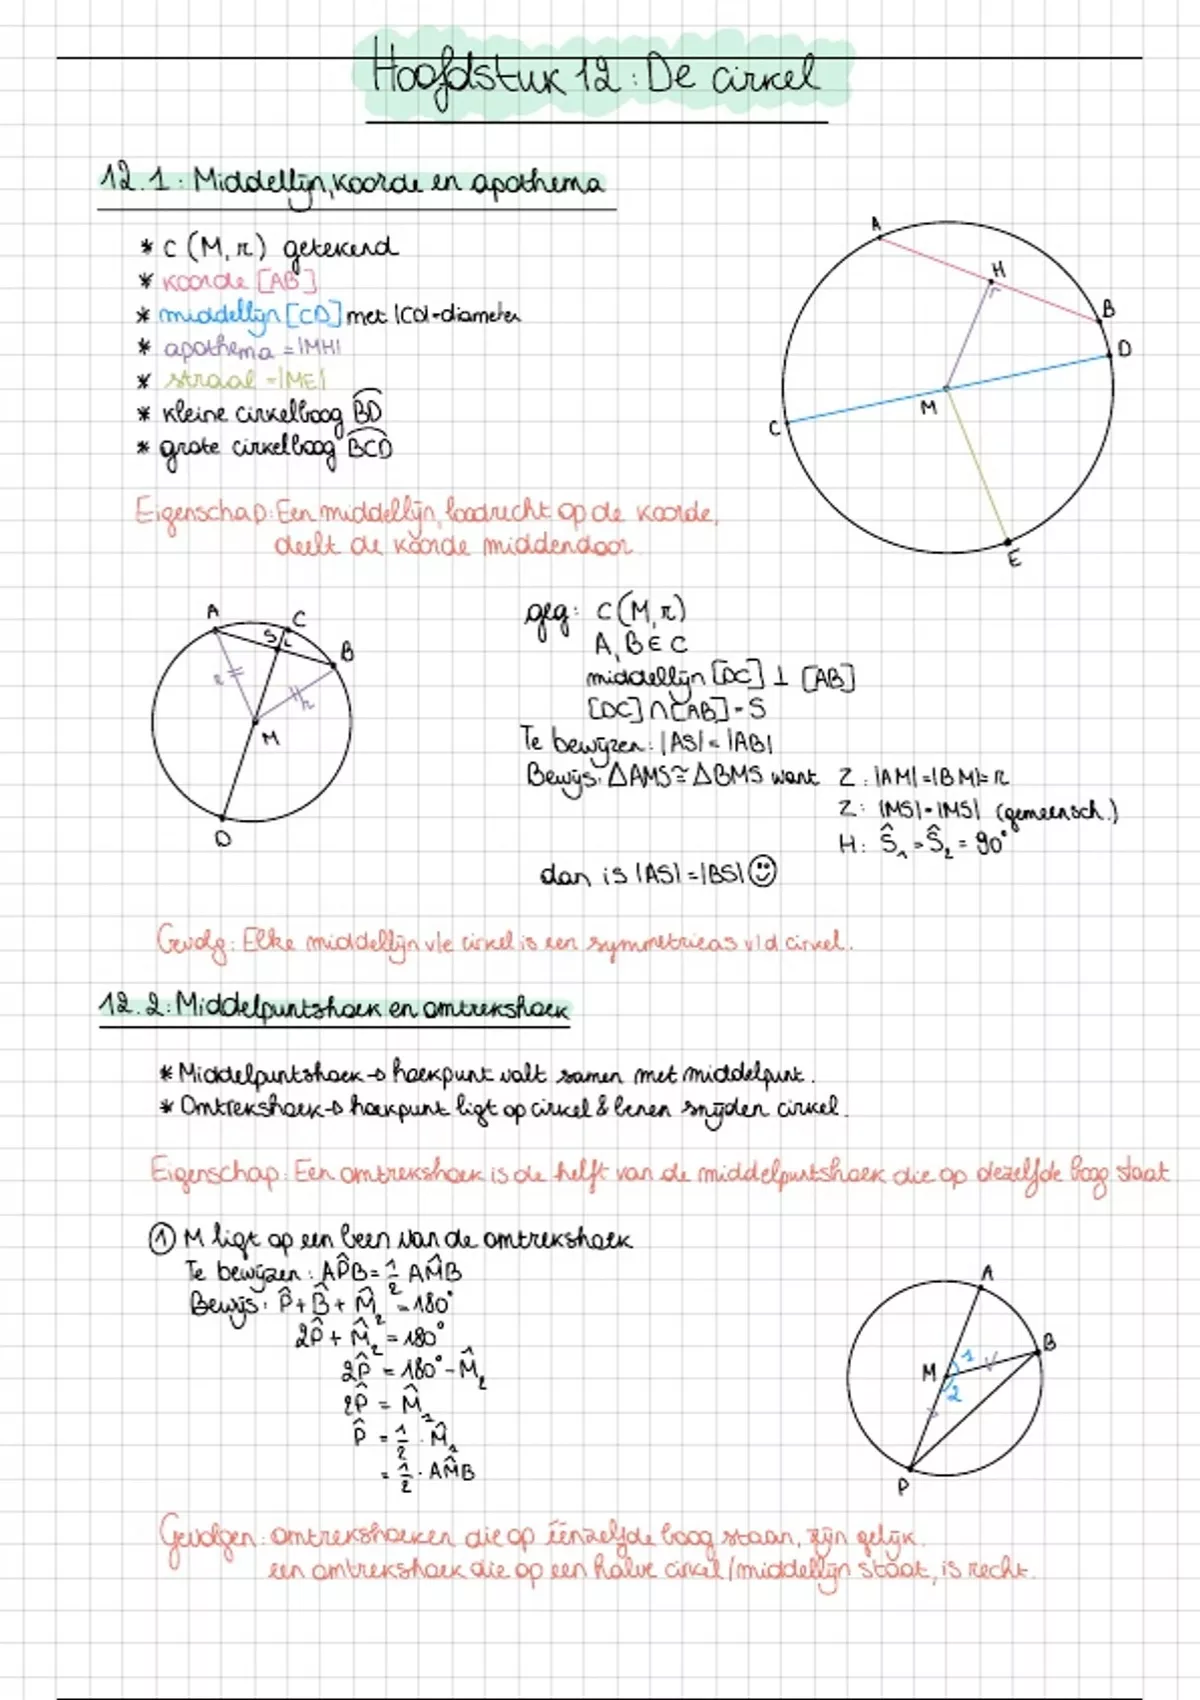 Hoofdstuk 12: De cirkel
12.1: Middellijn, koorde en apothema
* C (M, r) getekend
* koorde [AB]
* middellijn [CD] met |CD|=diameter
* apothema = |MH|
* straal = |ME|
* kleine cirkelboog B͡D
* grote cirkelboog B͡CD
A
H
B
D
M
C
E
Eigenschap: Een middellijn, loodrecht op de koorde,
deelt de koorde middendoor
A
C
S
B
r
r
M
D
geg: C(M, r)
A, B ∈ C
middellijn [DC] ⊥ [AB]
[DC] ∩ [AB] = S
Te bewijzen: |AS| = |AB|
Bewijs: △AMS ≅ △BMS want Z: |AM|=|BM|=r
Z: |MS|=|MS| (gemeensch.)
H: Ŝ₁ = Ŝ₂ = 90°
dan is |AS|=|BS| ☺
Gevolg: Elke middellijn v/e cirkel is een symmetrieas v/d cirkel.
12.2: Middelpuntshoek en omtrekshoek
* Middelpuntshoek → hoekpunt valt samen met middelpunt.
* Omtrekshoek → hoekpunt ligt op cirkel & benen snijden cirkel.
Eigenschap: Een omtrekshoek is de helft van de middelpuntshoek die op dezelfde boog staat
① M ligt op een been van de omtrekshoek
Te bewijzen: AP̂B = 1/2 AM̂B
Bewijs: P̂ + B̂ + M̂₂ = 180°
2P̂ + M̂₂ = 180°
2P̂ = 180° - M̂₂
2P̂ = M̂₁
P̂ = 1/2 · M̂₁
= 1/2 · AM̂B
A
B
M
1
2
P
Gevolgen: omtrekshoeken die op éénzelfde boog staan, zijn gelijk.
een omtrekshoek die op een halve cirkel / middellijn staat, is recht.